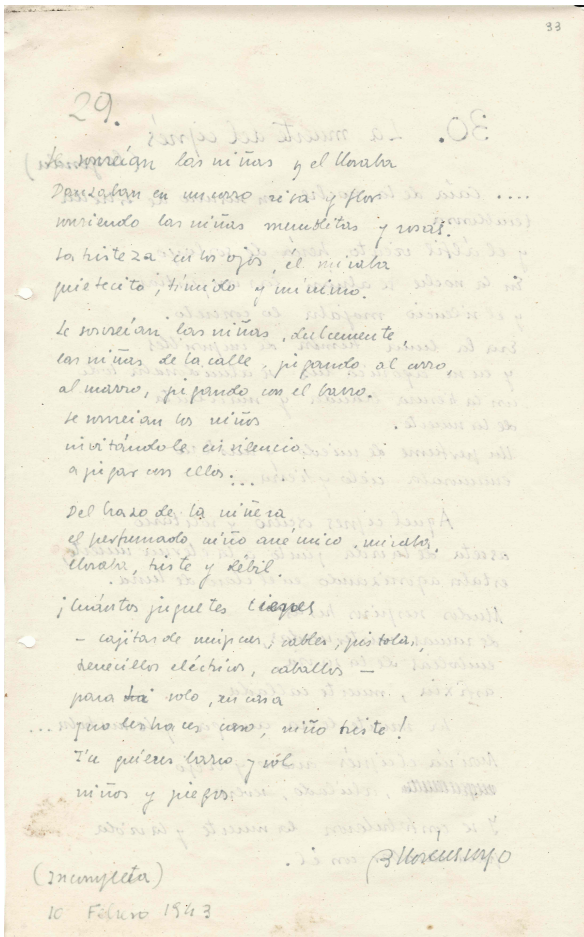 33
29.
Le sonreían las niñas y el lloraba
Danzaban en un corro risa y flores
sonriendo las niñas menuditas y rosas.
La tristeza en los ojos, el miraba
quietecito, tímido y mínimo.
Le sonreían las niñas, dulcemente,
las niñas de la calle, jugando al corro,
al marro, jugando con el barro.
Le sonreian los niños
invitándole en silencio
a jugar con ellos...
Del brazo de la niñera
el perfumado niño anémico, miraba,
lloraba, triste y débil.
¡Cuántos juguetes tienes
— cajitas de, sables, pistola,
trenecillos eléctricos, caballos —
para solo, en casa
y no les haces caso, niño triste!
Tu quieres barro y sól
niños y juegos.
(Incompleta)
10 Febrero 1943